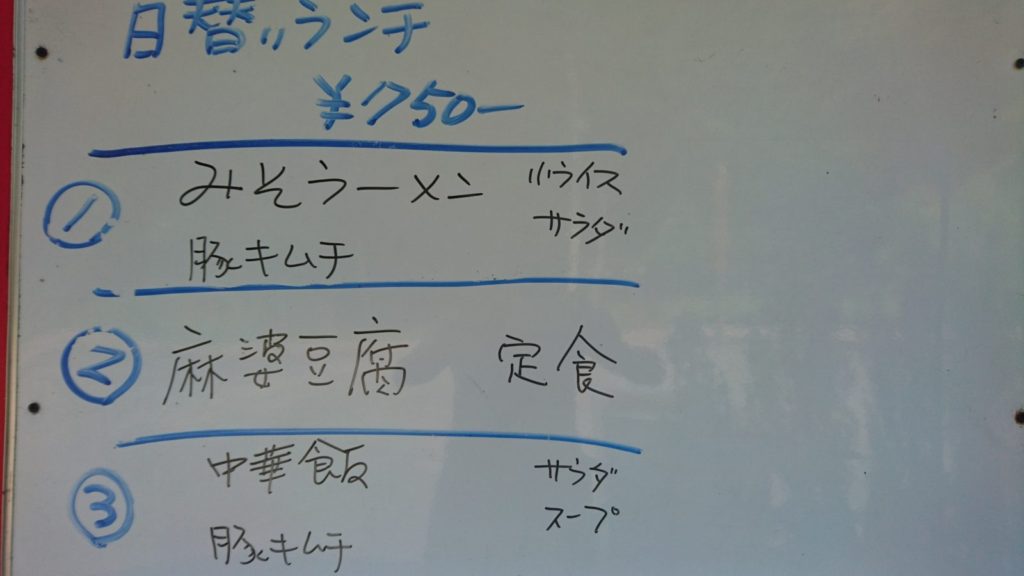 日替りランチ
¥750ー
① みそラーメン 小ライス
サラダ
豚キムチ
② 麻婆豆腐 定食
③ 中華飯 サラダ
スープ
豚キムチ